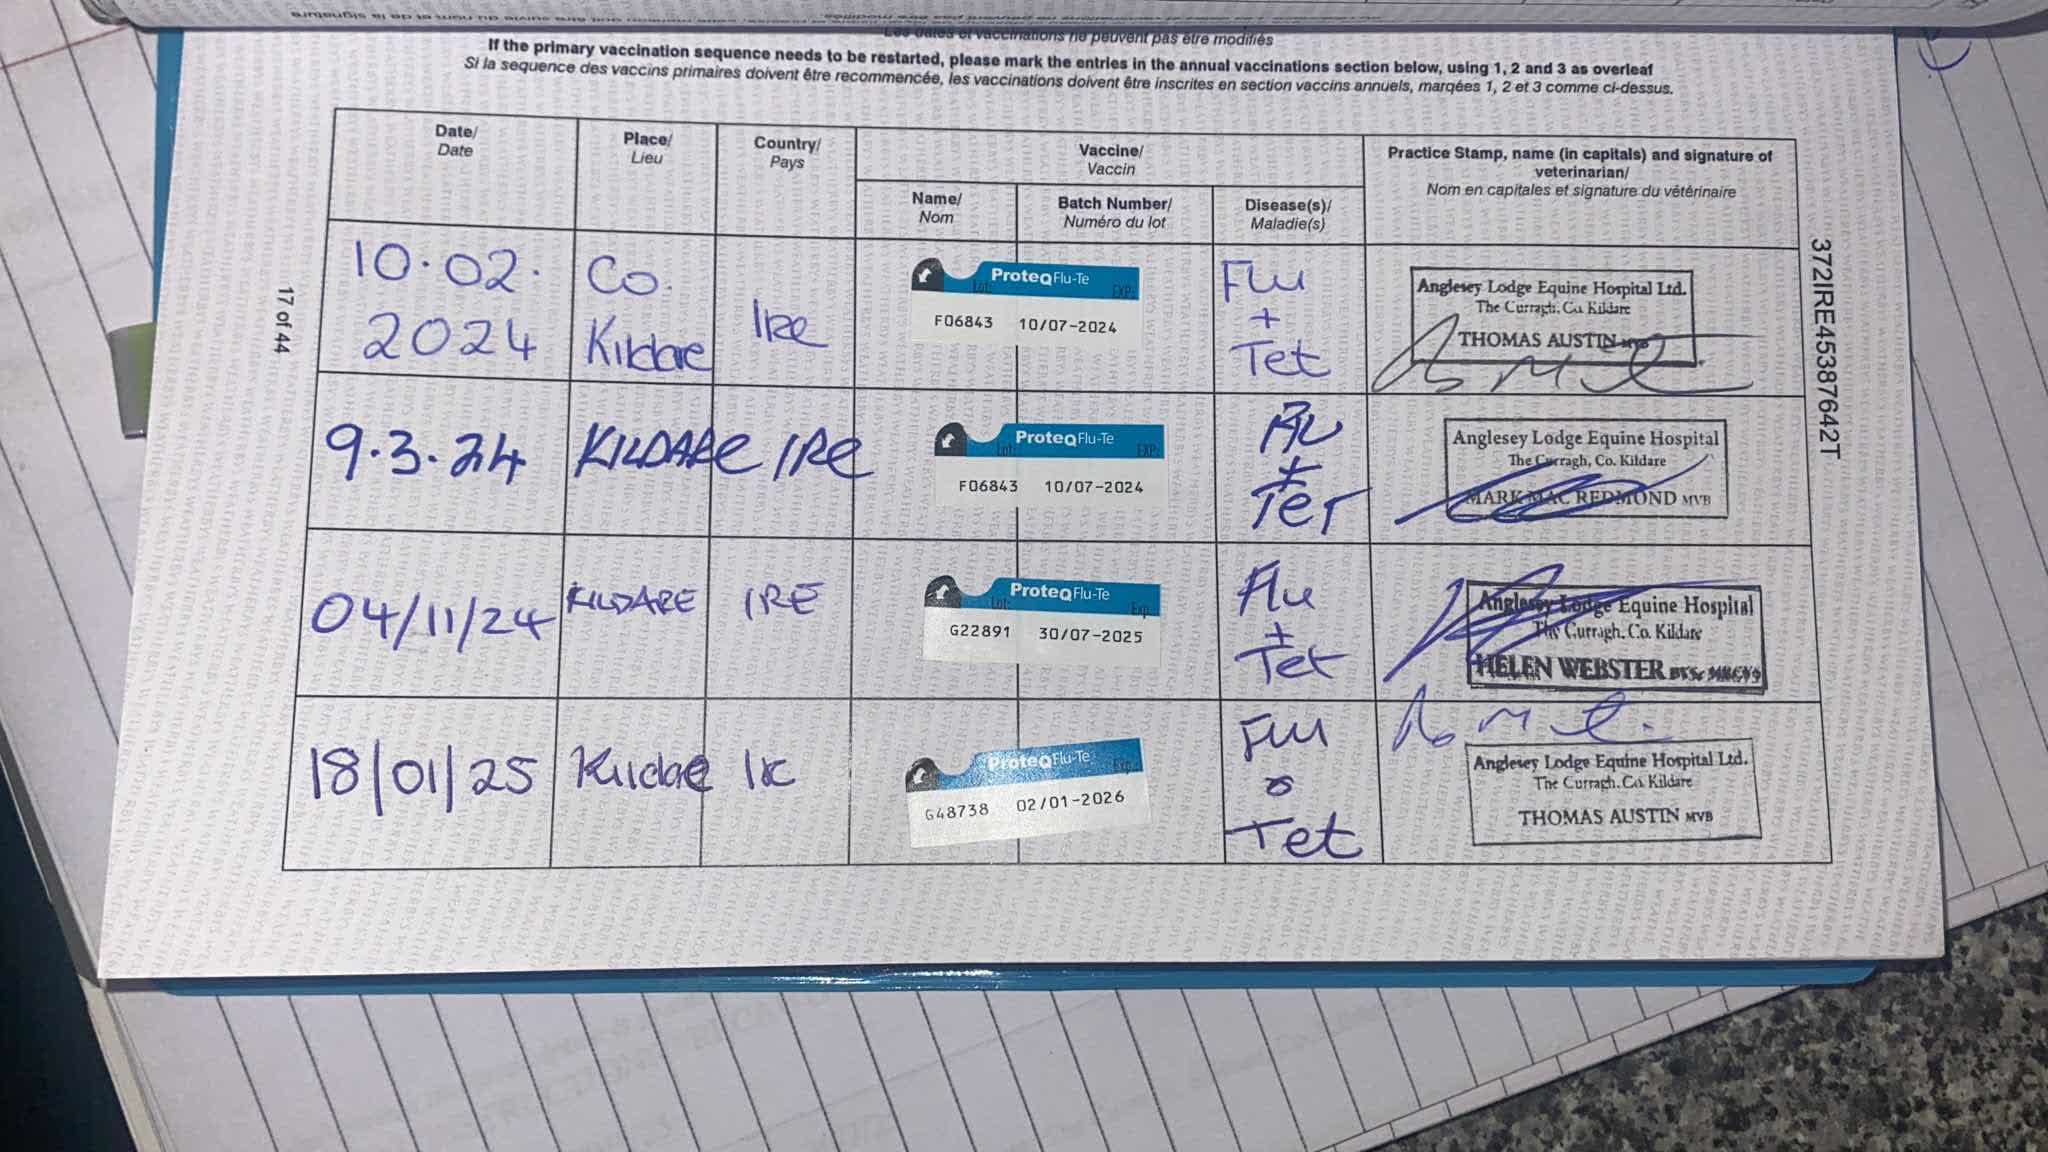 Les dates et vaccinations ne peuvent pas être modifiés
If the primary vaccination sequence needs to be restarted, please mark the entries in the annual vaccinations section below, using 1, 2 and 3 as overleaf
Si la sequence des vaccins primaires doivent être recommencée, les vaccinations doivent être inscrites en section vaccins annuels, marqées 1, 2 et 3 comme ci-dessus.
Date/ Place/ Country/ Vaccine/ Practice Stamp, name (in capitals) and signature of
Date Lieu Pays Vaccin veterinarian/
Name/ Batch Number/ Disease(s)/ Nom en capitales et signature du vétérinaire
Nom Numéro du lot Maladie(s)
10.02. Co. ProteqFlu-Te Flu Anglesey Lodge Equine Hospital Ltd.
Lot: EXP. + The Curragh, Co. Kildare
2024 Kildare Ire F06843 10/07-2024 Tet THOMAS AUSTIN MVB
9.3.24 KILDARE IRE ProteqFlu-Te Flu Anglesey Lodge Equine Hospital
Lot: EXP. + The Curragh, Co. Kildare
F06843 10/07-2024 Tet MARK MAC REDMOND MVB
04/11/24 KILDARE IRE ProteqFlu-Te Flu Anglesey Lodge Equine Hospital
Lot: Exp. + The Curragh, Co. Kildare
G22891 30/07-2025 Tet HELEN WEBSTER BVSc MRCVS
18/01/25 Kildare ProteqFlu-Te Flu Anglesey Lodge Equine Hospital Ltd.
Exp. The Curragh, Co. Kildare
G48738 02/01-2026 Tet THOMAS AUSTIN MVB
17 of 44
372IRE45387642T